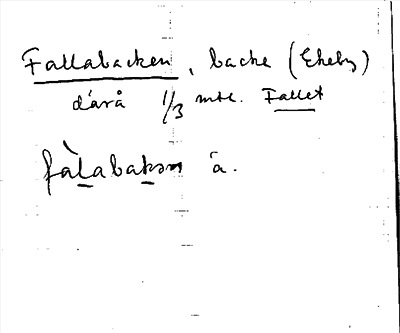 Fallabacken, backe (Ekeby)
därå 1/3 mtl. Fallet
fàlabakən a.